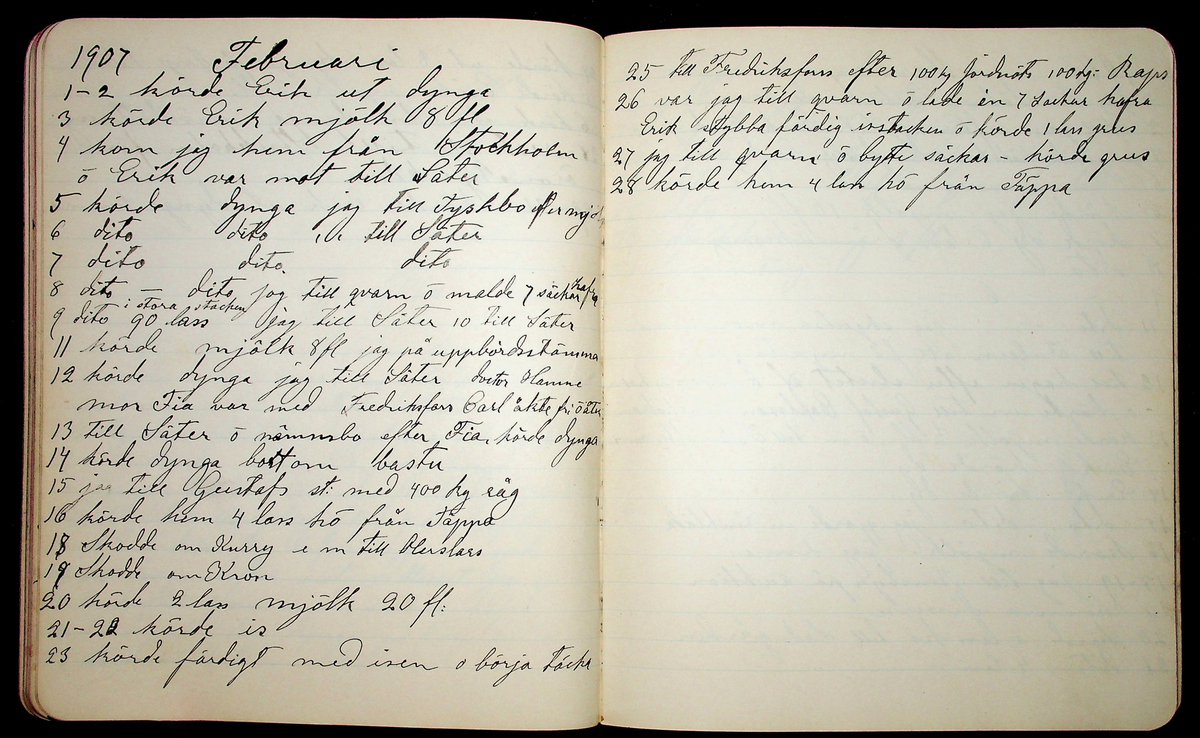 1907 Februari
1-2 körde Erik ut dynga
3 körde Erik mjölk 8 fl
4 kom jag hem från Stockholm
ö Erik var mot till Säter
5 körde dynga jag till Tyskbo efter mjöl
6 dito dito " till Säter
7 dito dito. dito
8 dito — dito jag till qvarn ö malde 7 säckar hafra
i stora stacken
9 dito 90 lass jag till Säter 10 till Säter
11 körde mjölk 8 fl jag på uppbördsstämma
12 körde dynga jag till Säter doctor Hamne
mor Fia var med Fredriksfors Carl åkte fri ö åter
13 till Säter ö nämnsbo efter Fia, körde dynga
14 körde dynga bortom bastu
15 jag till Gustafs st: med 400 kg råg
16 körde hem 4 lass hö från Täppa
18 Skodde om Kurry e m till Olerslars
19 Skodde om Kron
20 körde 2 lass mjölk 20 fl:
21-22 körde is
23 körde färdigt med isen o börja täcka
25 till Fredriksfors efter 100 kg jordnöts 100 kg: Raps
26 var jag till qvarn ö lade in 7 säckar hafra
Erik stybba färdig isstacken ö körde 1 lass grus
27 jag till qvarn ö bytte säckar – körde grus
28 körde hem 4 lass hö från Täppa